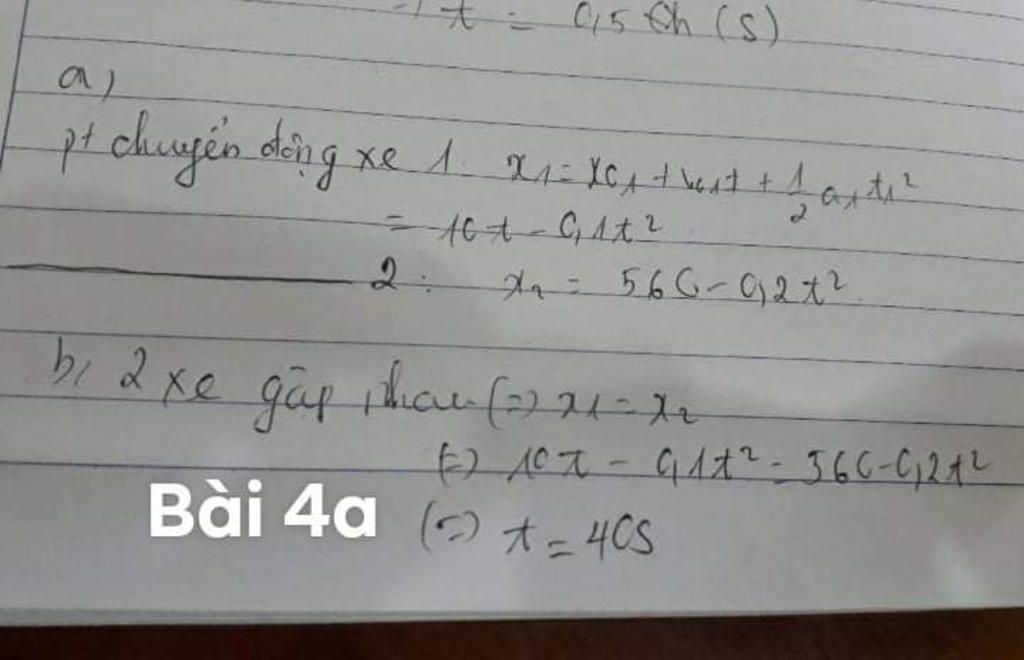 t = 0,5 (s)
a)
pt chuyển động xe 1. x₁ = x₀₁ + v₀₁t + 1/2 a₁t₁²
= 10t - 0,1t²
2 : x₂ = 560 - 0,2t²
b, 2 xe gặp nhau (=) x₁ = x₂
(=) 10t - 0,1t² = 560 - 0,2t²
Bài 4a (=) t = 40s